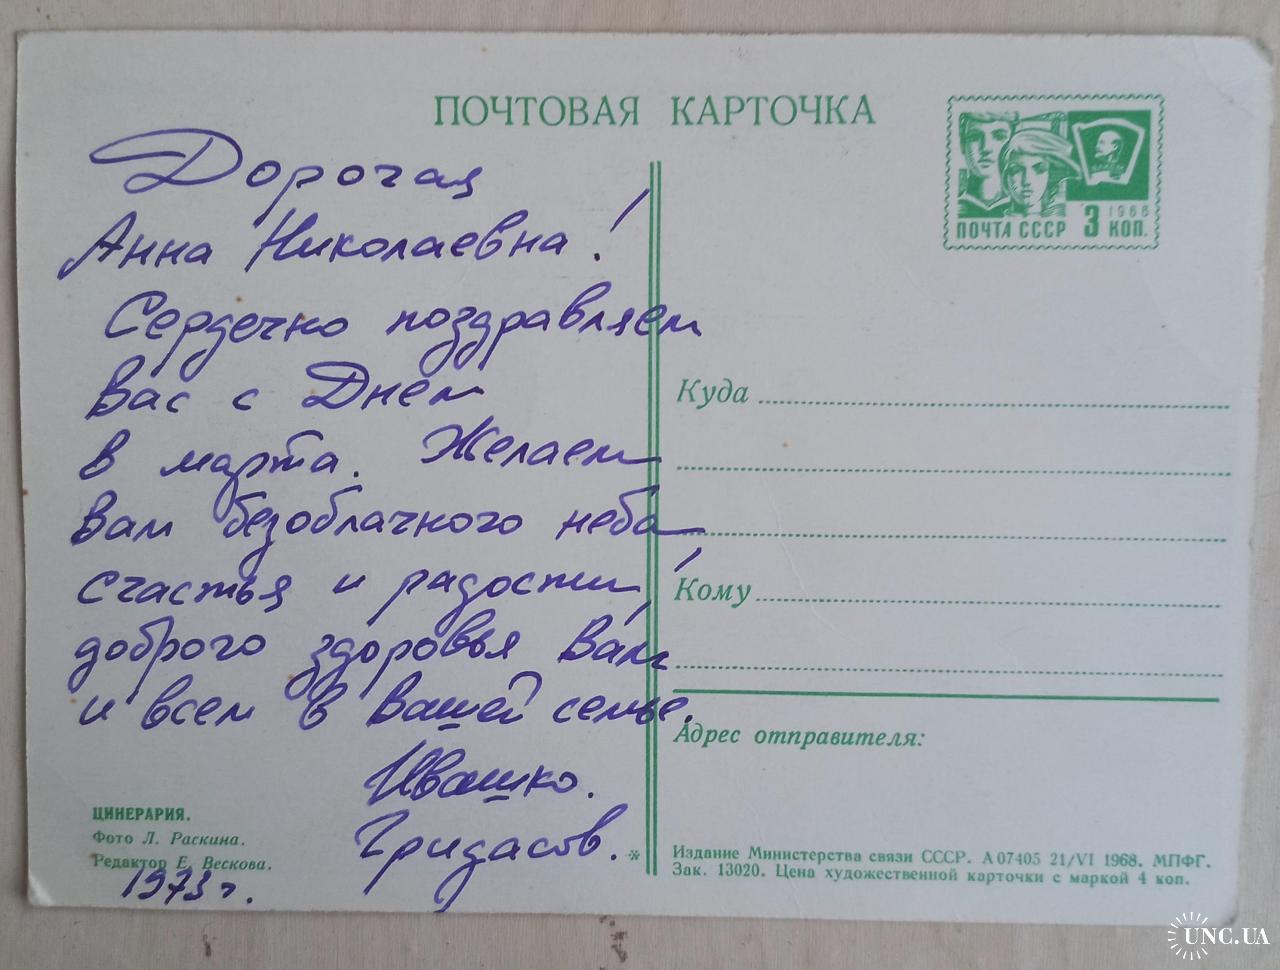 ПОЧТОВАЯ КАРТОЧКА
1966
ПОЧТА СССР 3 КОП.
Дорогая
Анна Николаевна!
Сердечно поздравляем
Вас с Днём
8 марта. Желаем
Вам безоблачного неба
счастья и радости!
доброго здоровья Вам
и всем в Вашей семье.
Ивашко.
Гридасов.
1973 г.
ЦИНЕРАРИЯ.
Фото Л. Раскина.
Редактор Е. Вескова.
Куда
Кому
Адрес отправителя:
* Издание Министерства связи СССР. А 07405 21/VI 1968. МПФГ.
Зак. 13020. Цена художественной карточки с маркой 4 коп.
UNC.UA